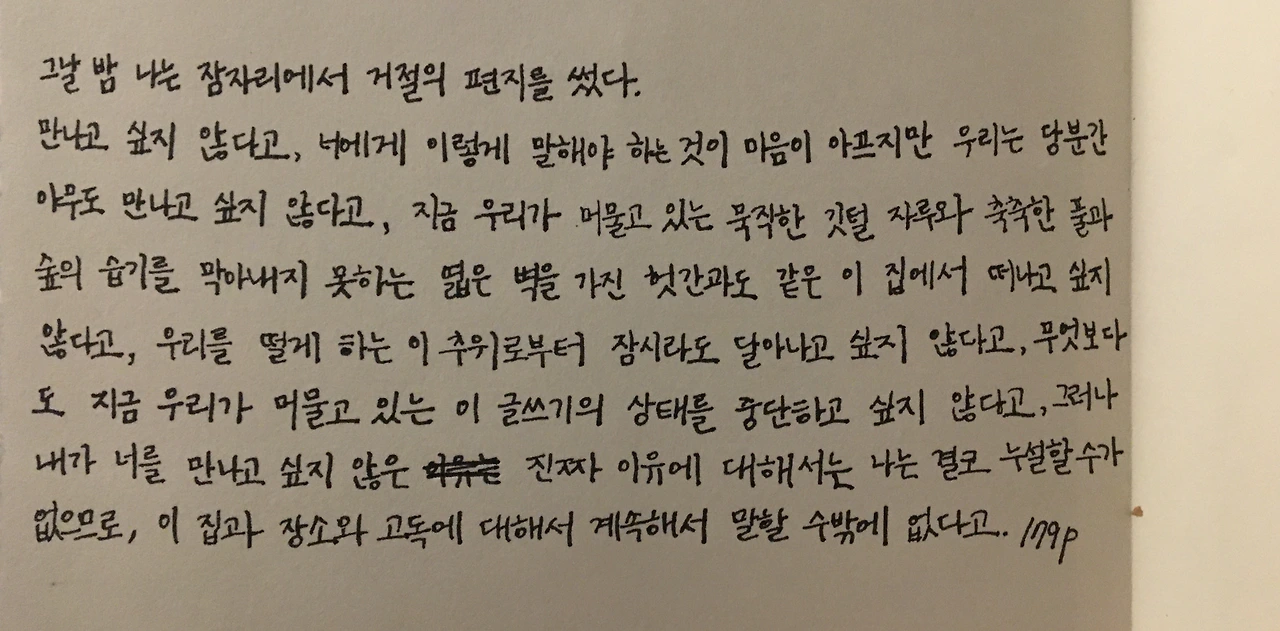 그날 밤 나는 잠자리에서 거절의 편지를 썼다.
만나고 싶지 않다고, 너에게 이렇게 말해야 하는 것이 마음이 아프지만 우리는 당분간
아무도 만나고 싶지 않다고, 지금 우리가 머물고 있는 묵직한 깃털 자루와 축축한 풀과
숲의 습기를 막아내지 못하는 엷은 벽을 가진 헛간과도 같은 이 집에서 떠나고 싶지
않다고, 우리를 떨게 하는 이 추위로부터 잠시라도 달아나고 싶지 않다고, 무엇보다
도 지금 우리가 머물고 있는 이 글쓰기의 상태를 중단하고 싶지 않다고, 그러나
내가 너를 만나고 싶지 않은 진짜 이유에 대해서는 나는 결코 누설할 수가
없으므로, 이 집과 장소와 고독에 대해서 계속해서 말할 수밖에 없다고.. 179p